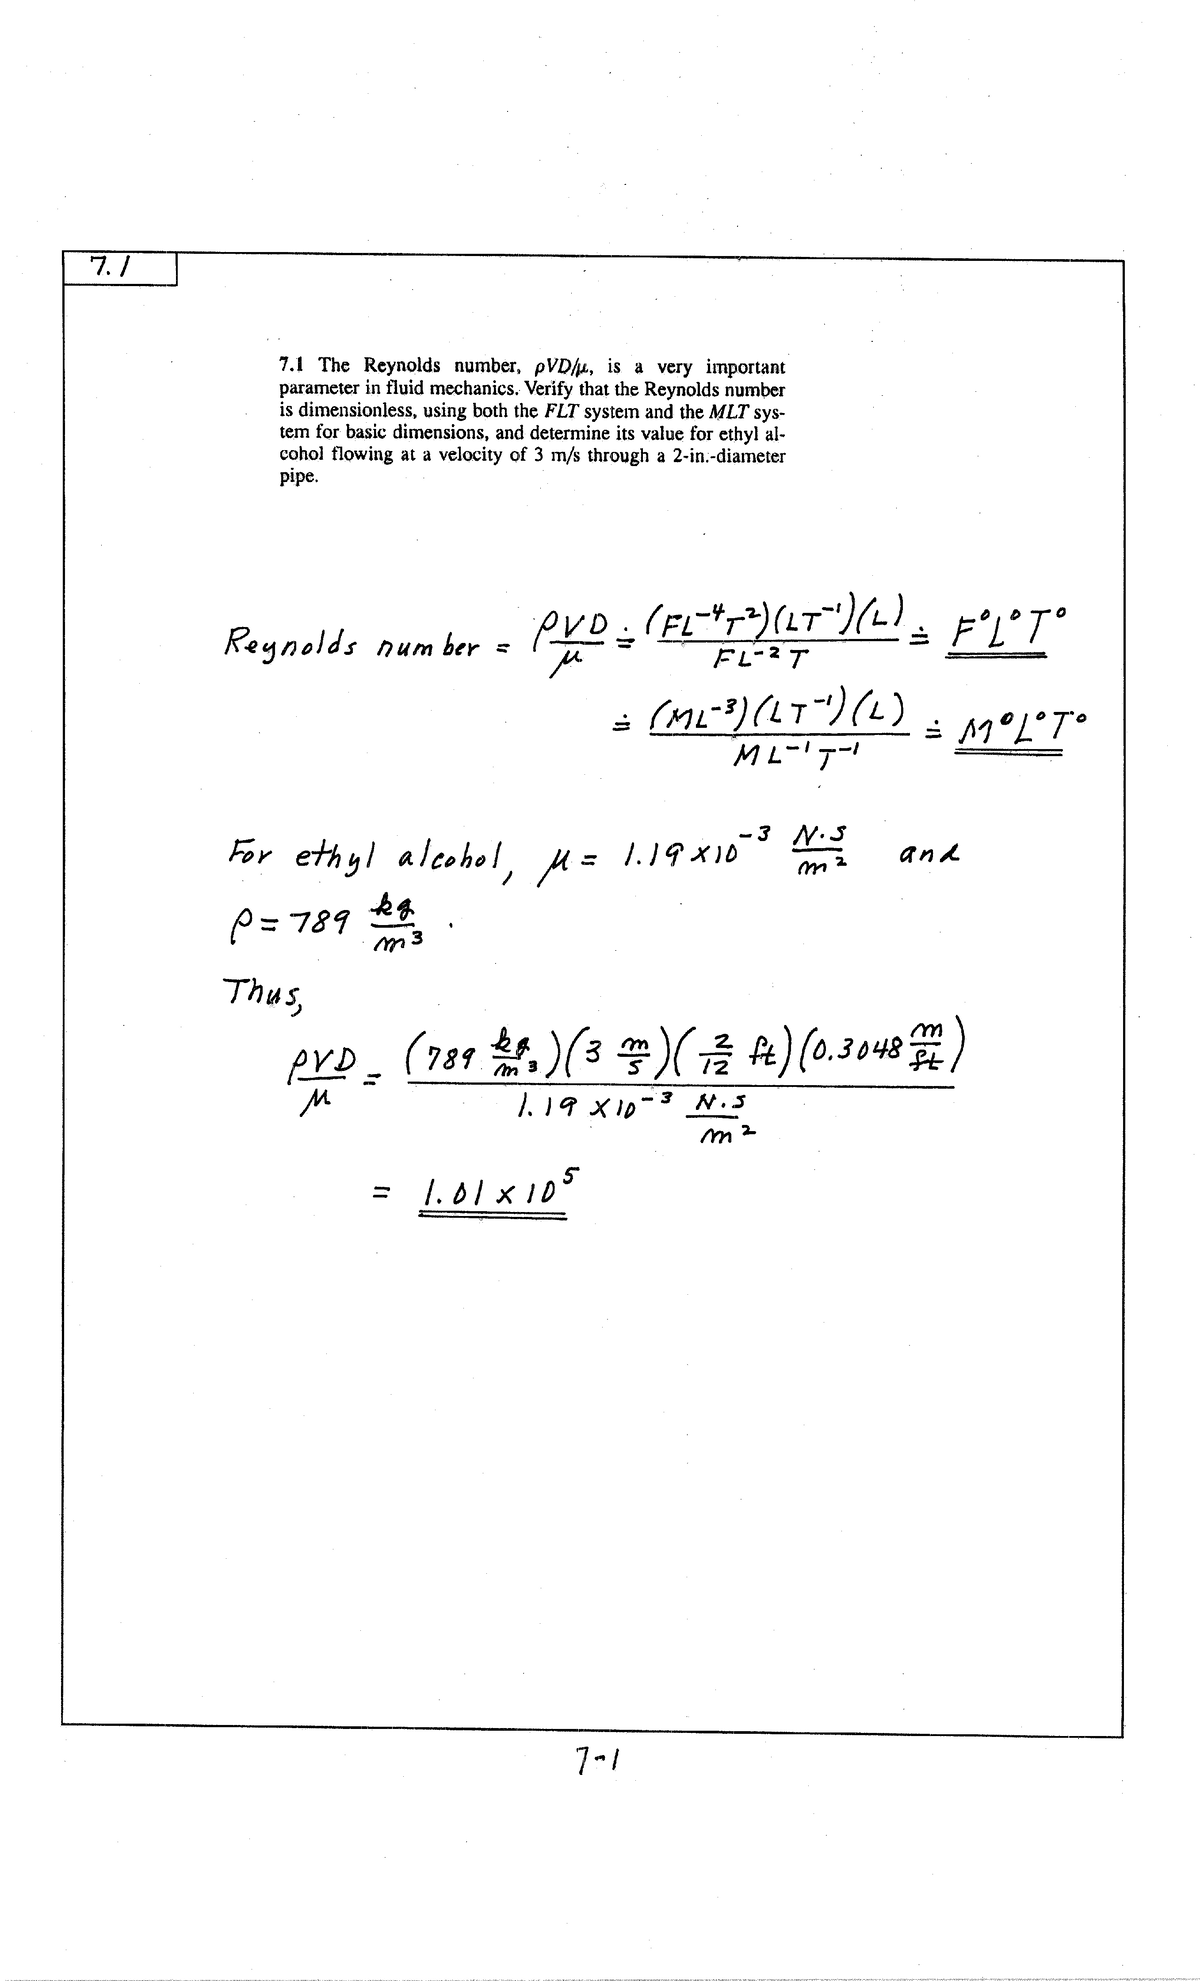 7.1
7.1 The Reynolds number, ρVD/μ, is a very important
parameter in fluid mechanics. Verify that the Reynolds number
is dimensionless, using both the FLT system and the MLT sys-
tem for basic dimensions, and determine its value for ethyl al-
cohol flowing at a velocity of 3 m/s through a 2-in.-diameter
pipe.
Reynolds number = ρVD/μ ≐ (FL⁻⁴T²)(LT⁻¹)(L)/FL⁻²T ≐ F⁰L⁰T⁰
≐ (ML⁻³)(LT⁻¹)(L)/ML⁻¹T⁻¹ ≐ M⁰L⁰T⁰
For ethyl alcohol, μ = 1.19 × 10⁻³ N·s/m² and
ρ = 789 kg/m³.
Thus,
ρVD/μ = (789 kg/m³)(3 m/s)(2/12 ft)(0.3048 m/ft)/1.19 × 10⁻³ N·s/m²
= 1.01 × 10⁵
7-1